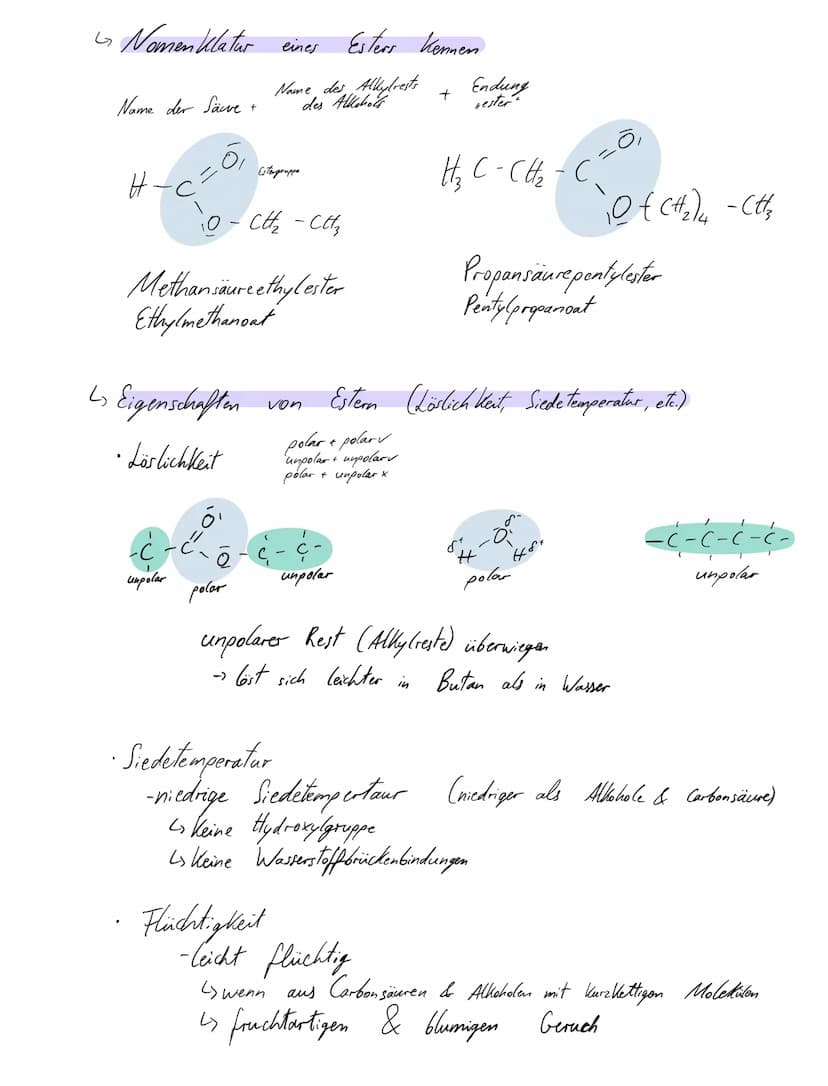 ↳ Nomenklatur eines Esters kennen
Name der Säure + Name des Alkylrests des Alkohols + Endung "ester"
H - C = O
Estergruppe
O - CH₂ - CH₃
H₃C - CH₂ - C = O
O-(CH₂)₄ - CH₃
Methansäureethylester
Ethylmethanoat
Propansäurepentylester
Pentylpropanoat
↳ Eigenschaften von Estern (Löslichkeit, Siedetemperatur, etc.)
· Löslichkeit
polar + polar ✓
unpolar + unpolar ✓
polar + unpolar x
-C-C=O
O-C-C-
unpolar polar unpolar
δ⁻
δ⁺ H O H δ⁺
polar
-C-C-C-C-
unpolar
unpolarer Rest (Alkylreste) überwiegen
→ löst sich leichter in Butan als in Wasser
· Siedetemperatur
-niedrige Siedetempertaur (niedriger als Alkohole & Carbonsäure)
↳ keine Hydroxylgruppe
↳ keine Wasserstoffbrückenbindungen
· Flüchtigkeit
-leicht flüchtig
↳ wenn aus Carbonsäuren & Alkoholen mit kurzkettigen Molekülen
↳ fruchtartigen & blumigen Geruch